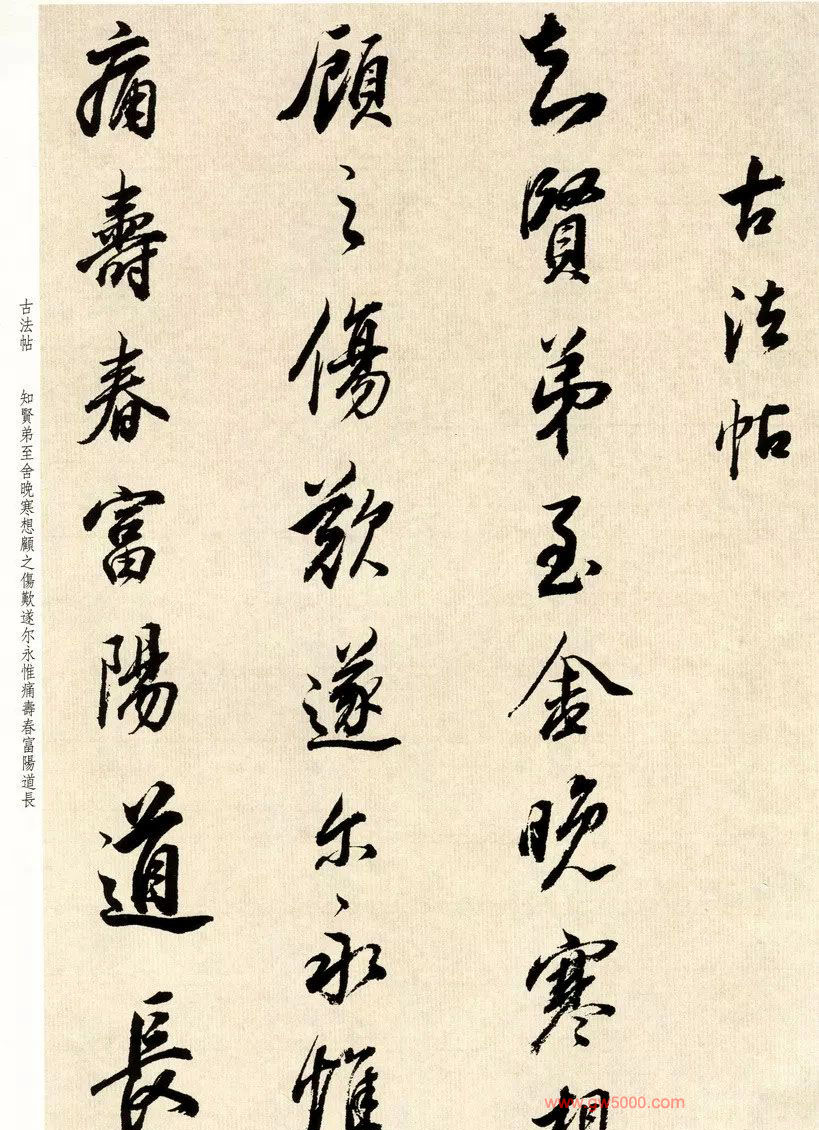 古法帖
知賢弟至舍晚寒想
顧之傷歎遂尔永惟
痛壽春富陽道長
古法帖 知賢弟至舍晚寒想顧之傷歎遂尔永惟痛壽春富陽道長
www.gw5000.com